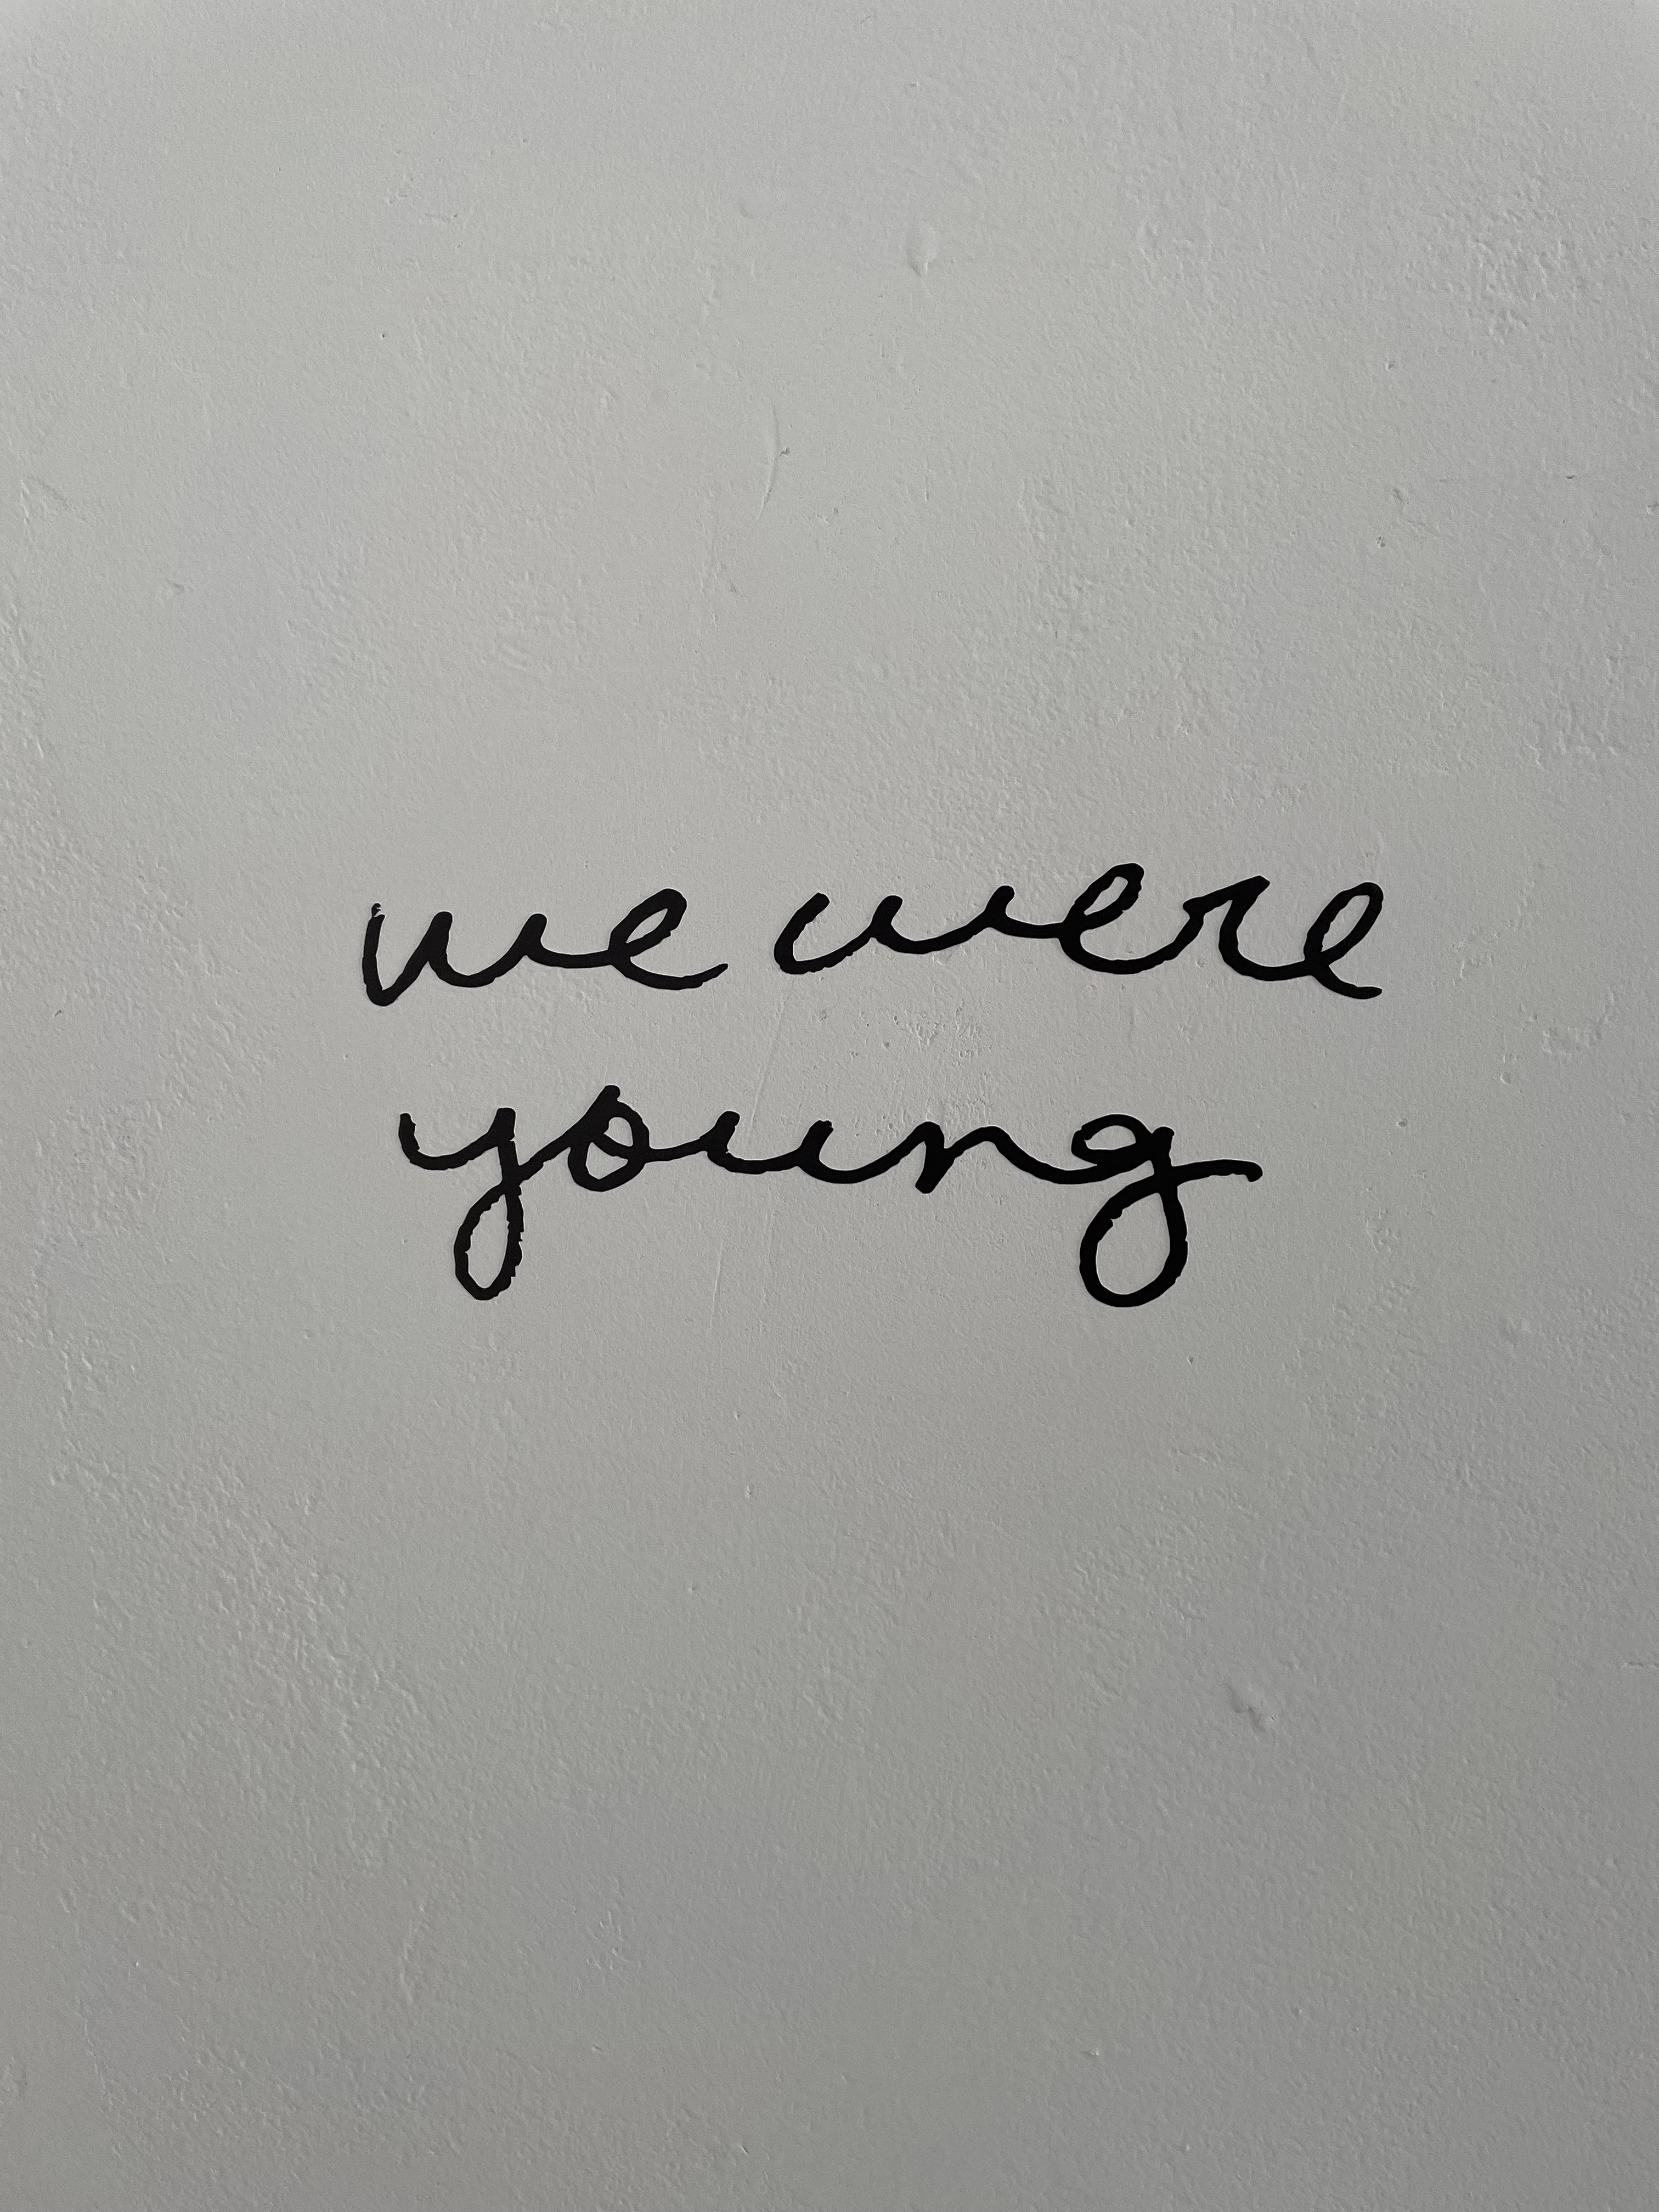 we were
young